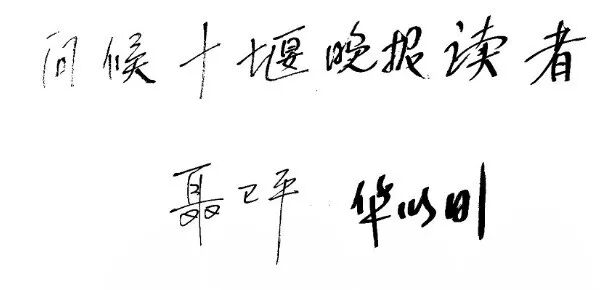 问候十堰晚报读者
聂卫平 华以刚